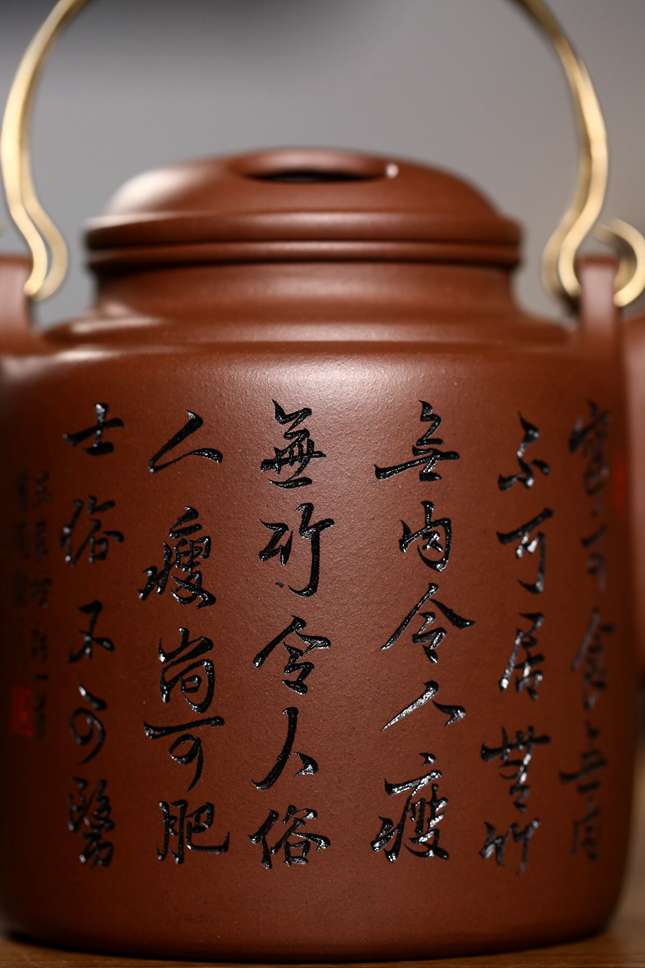 寧可食無肉
不可居無竹
無肉令人瘦
無竹令人俗
人瘦尚可肥
士俗不可醫